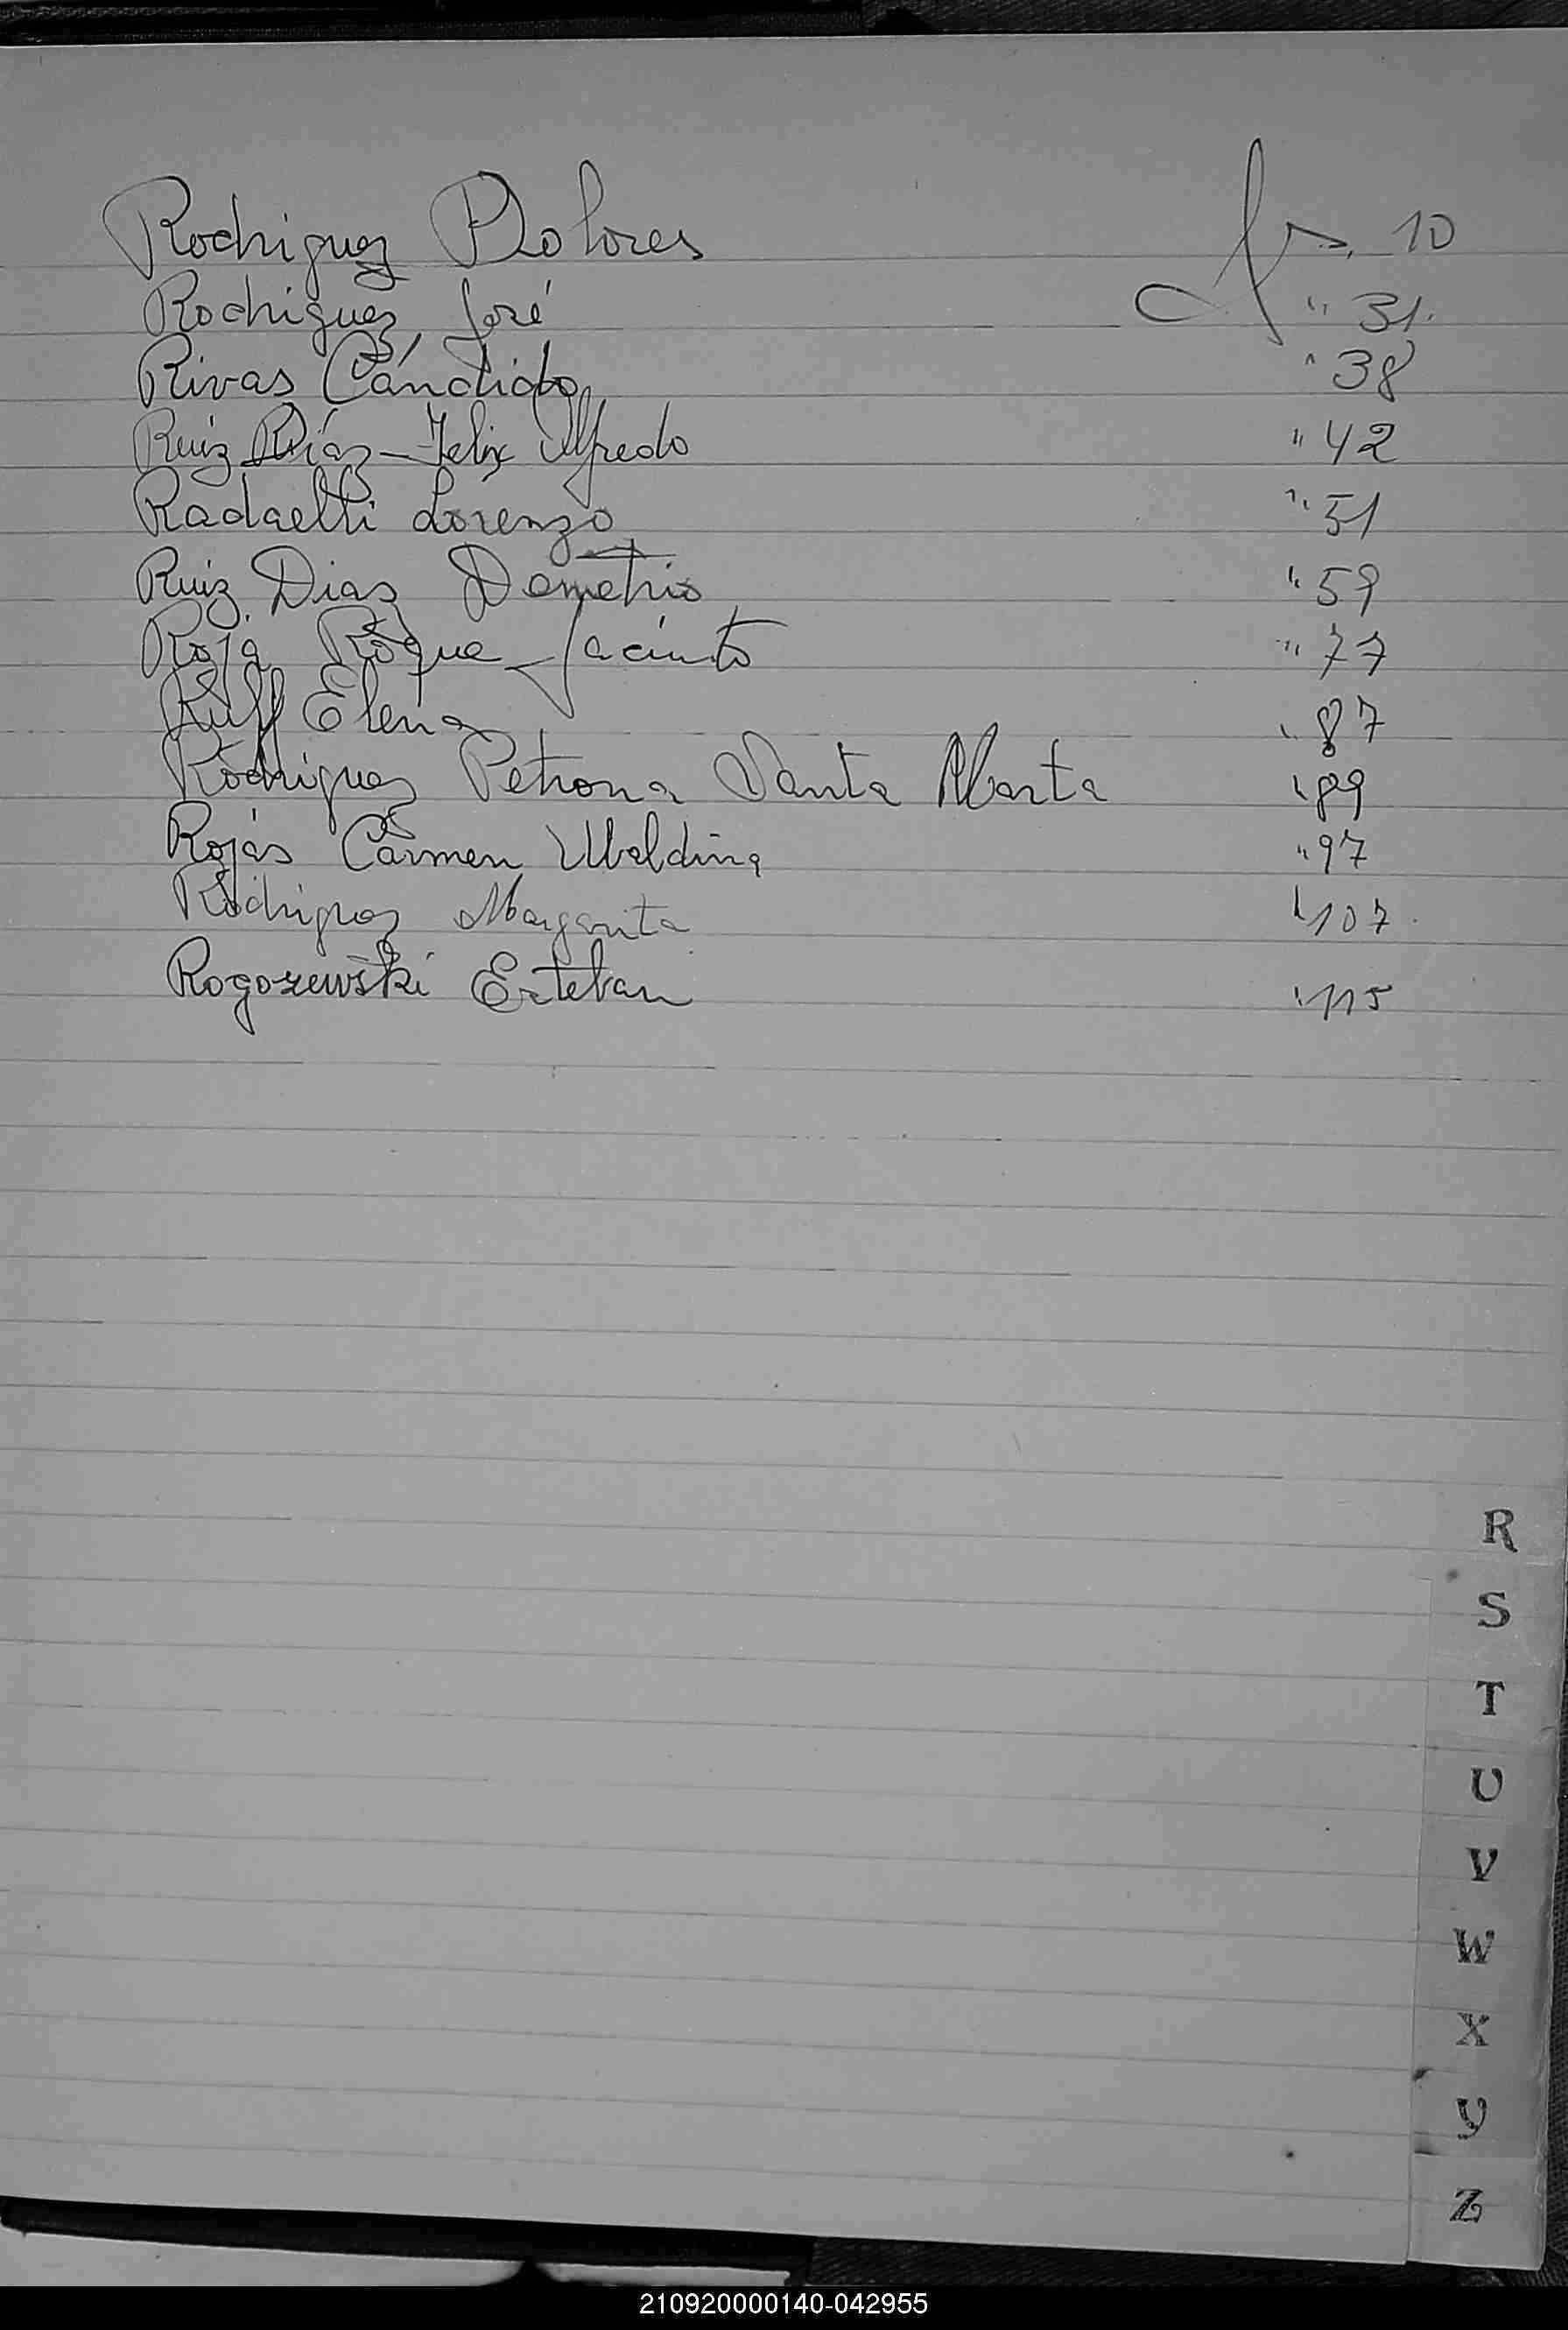 Rodriguez Dolores fs. 10
Rodriguez, José " 31.
Rivas Cándido " 38
Ruiz Díaz - Felix Alfredo " 42
Radaelli Lorenzo " 51
Ruiz Dias Demetrio " 59
Roja Roque Jacinto " 77
Ruff Elena " 87
Rodriguez Petrona Santa Marta " 89
Rojas Carmen Ubaldina " 97
Rodriguez Margarita " 107
Rogozewski Esteban " 115
R
S
T
U
V
W
X
Y
Z
210920000140-042955